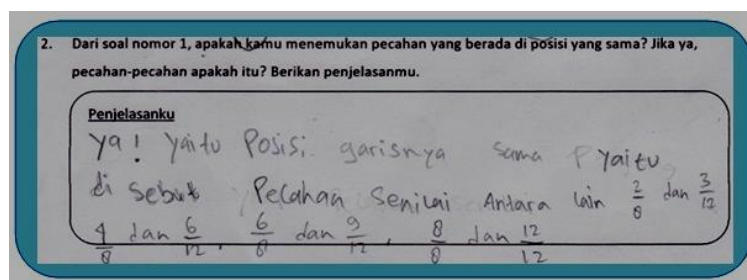 2. Dari soal nomor 1, apakah kamu menemukan pecahan yang berada di posisi yang sama? Jika ya,
pecahan-pecahan apakah itu? Berikan penjelasanmu.
Penjelasanku
Ya! Yaitu Posisi garisnya sama Yaitu
di sebut Pecahan Senilai Antara lain 2/8 dan 3/12
4/8 dan 6/12, 6/8 dan 9/12, 8/8 dan 12/12